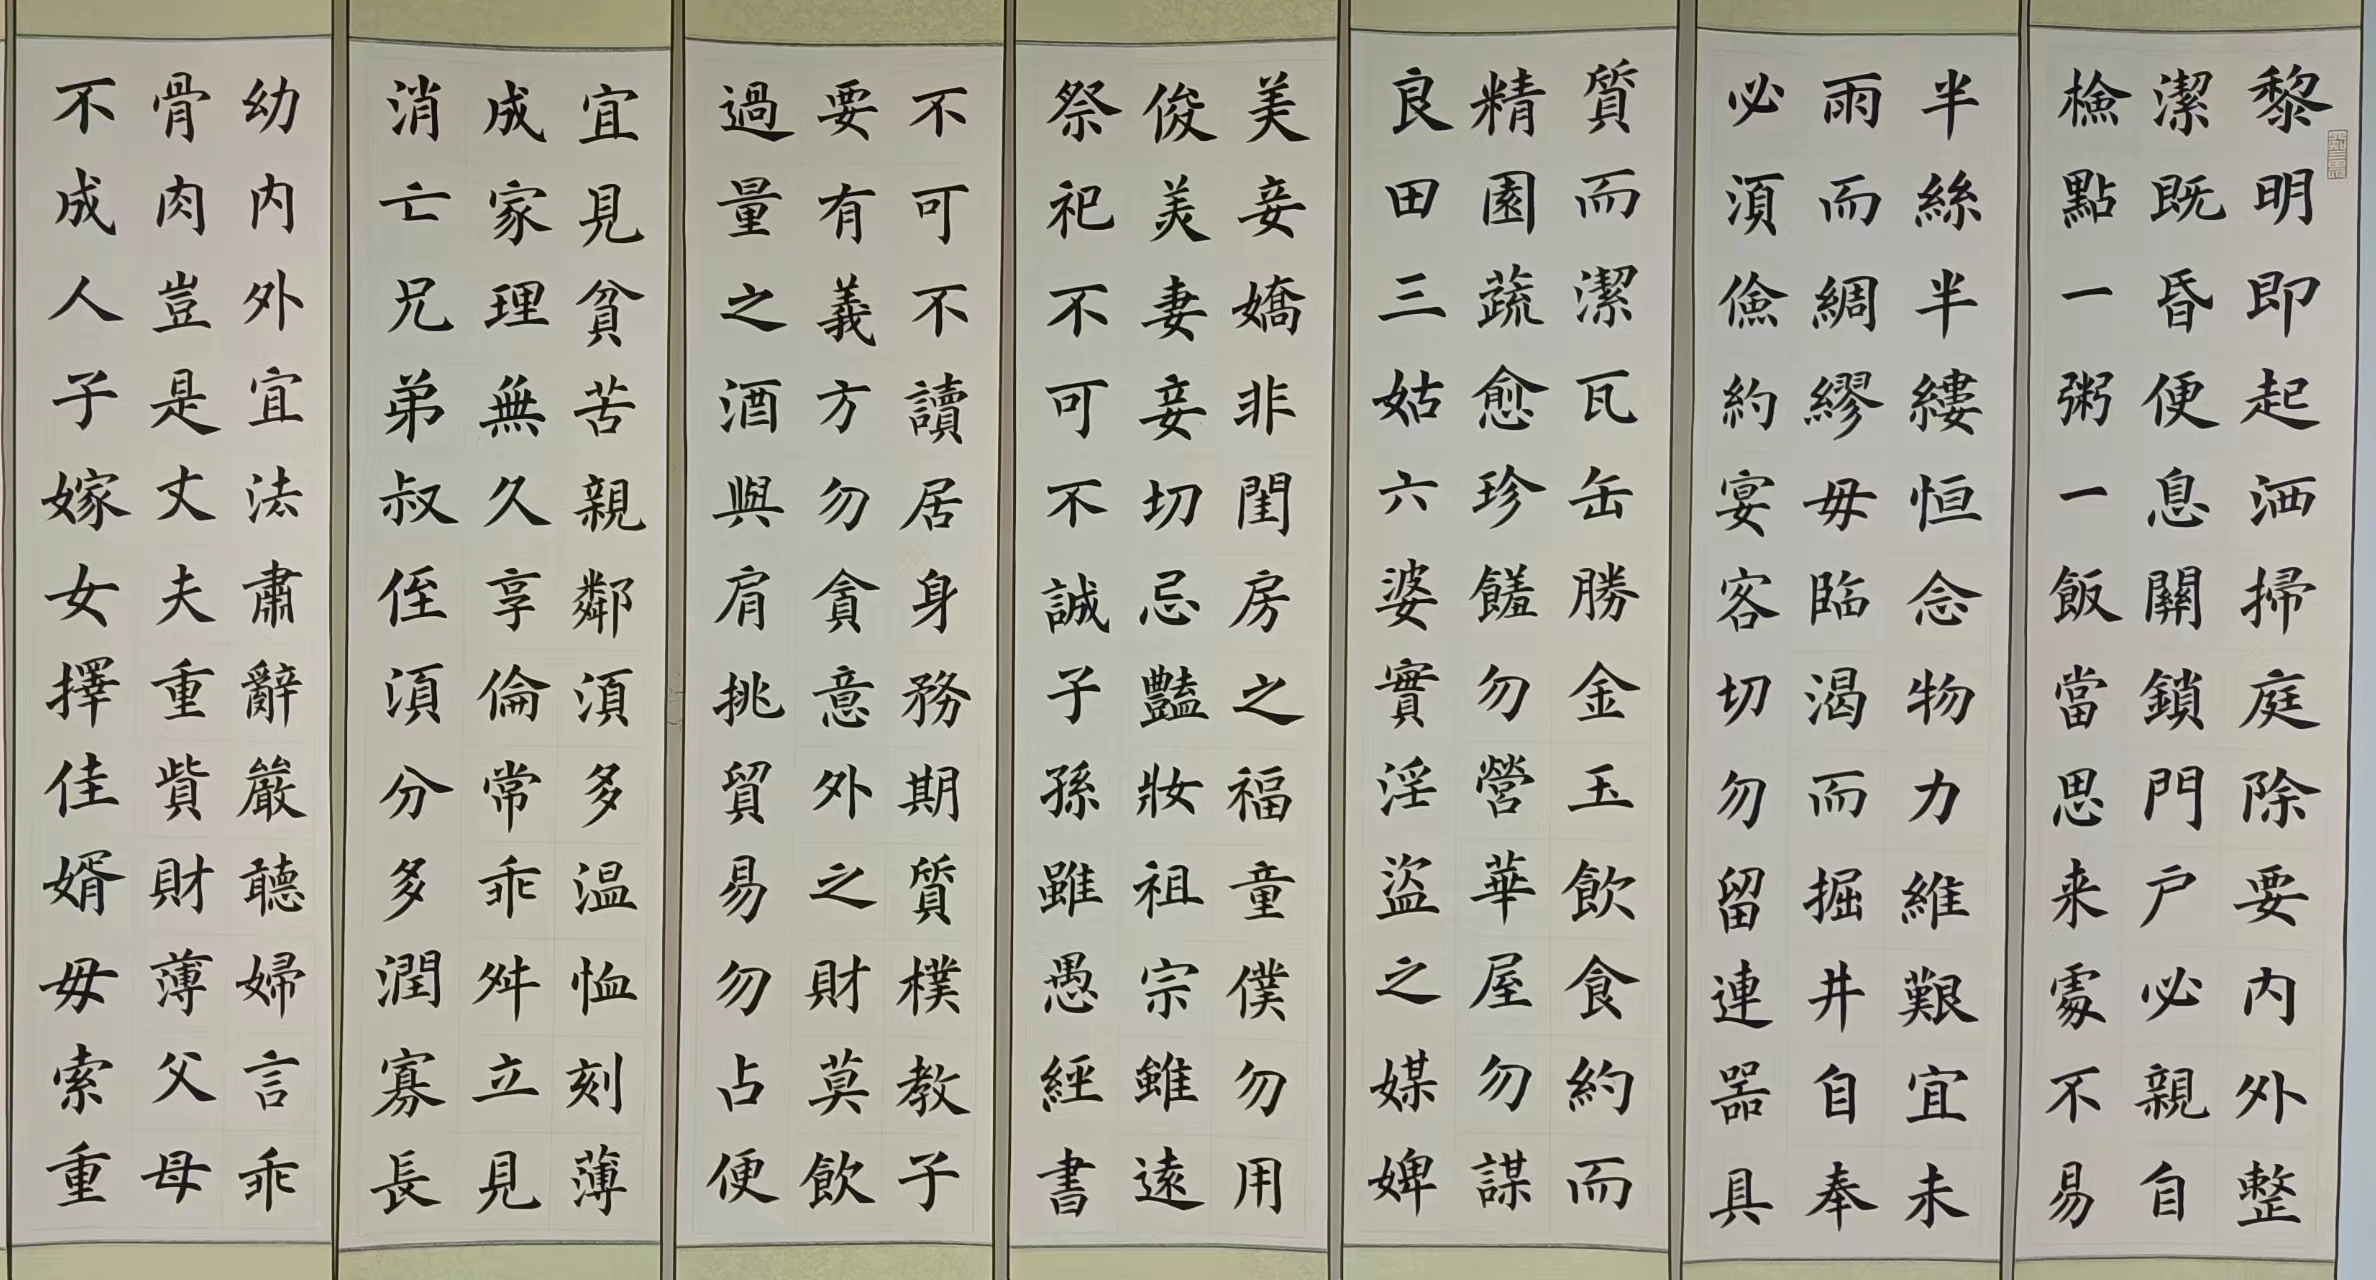 黎明即起洒掃庭除要内外整
潔既昏便息關鎖門户必親自
檢點一粥一飯當思来處不易
半絲半縷恒念物力維艱宜未
雨而綢繆毋臨渴而掘井自奉
必須儉約宴客切勿留連器具
質而潔瓦缶勝金玉飲食約而
精園蔬愈珍饈勿營華屋勿謀
良田三姑六婆實淫盜之媒婢
美妾嬌非閨房之福童僕勿用
俊美妻妾切忌豔妝祖宗雖遠
祭祀不可不誠子孫雖愚經書
不可不讀居身務期質樸教子
要有義方勿貪意外之財莫飲
過量之酒與肩挑貿易勿占便
宜見貧苦親鄰須多温恤刻薄
成家理無久享倫常乖舛立見
消亡兄弟叔侄須分多潤寡長
幼内外宜法肅辭嚴聽婦言乖
骨肉豈是丈夫重貲財薄父母
不成人子嫁女擇佳婿毋索重